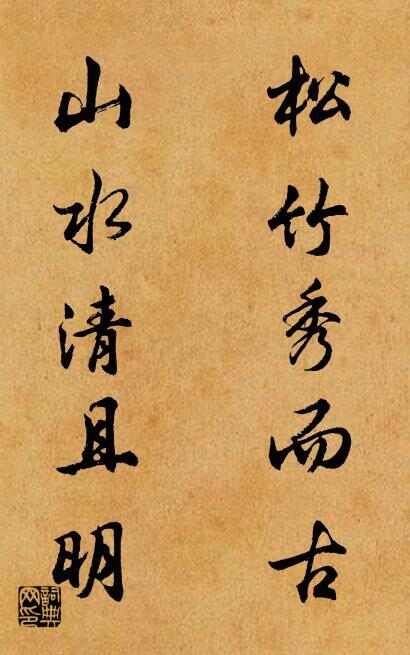 松竹秀而古
山水清且明
詞典网印